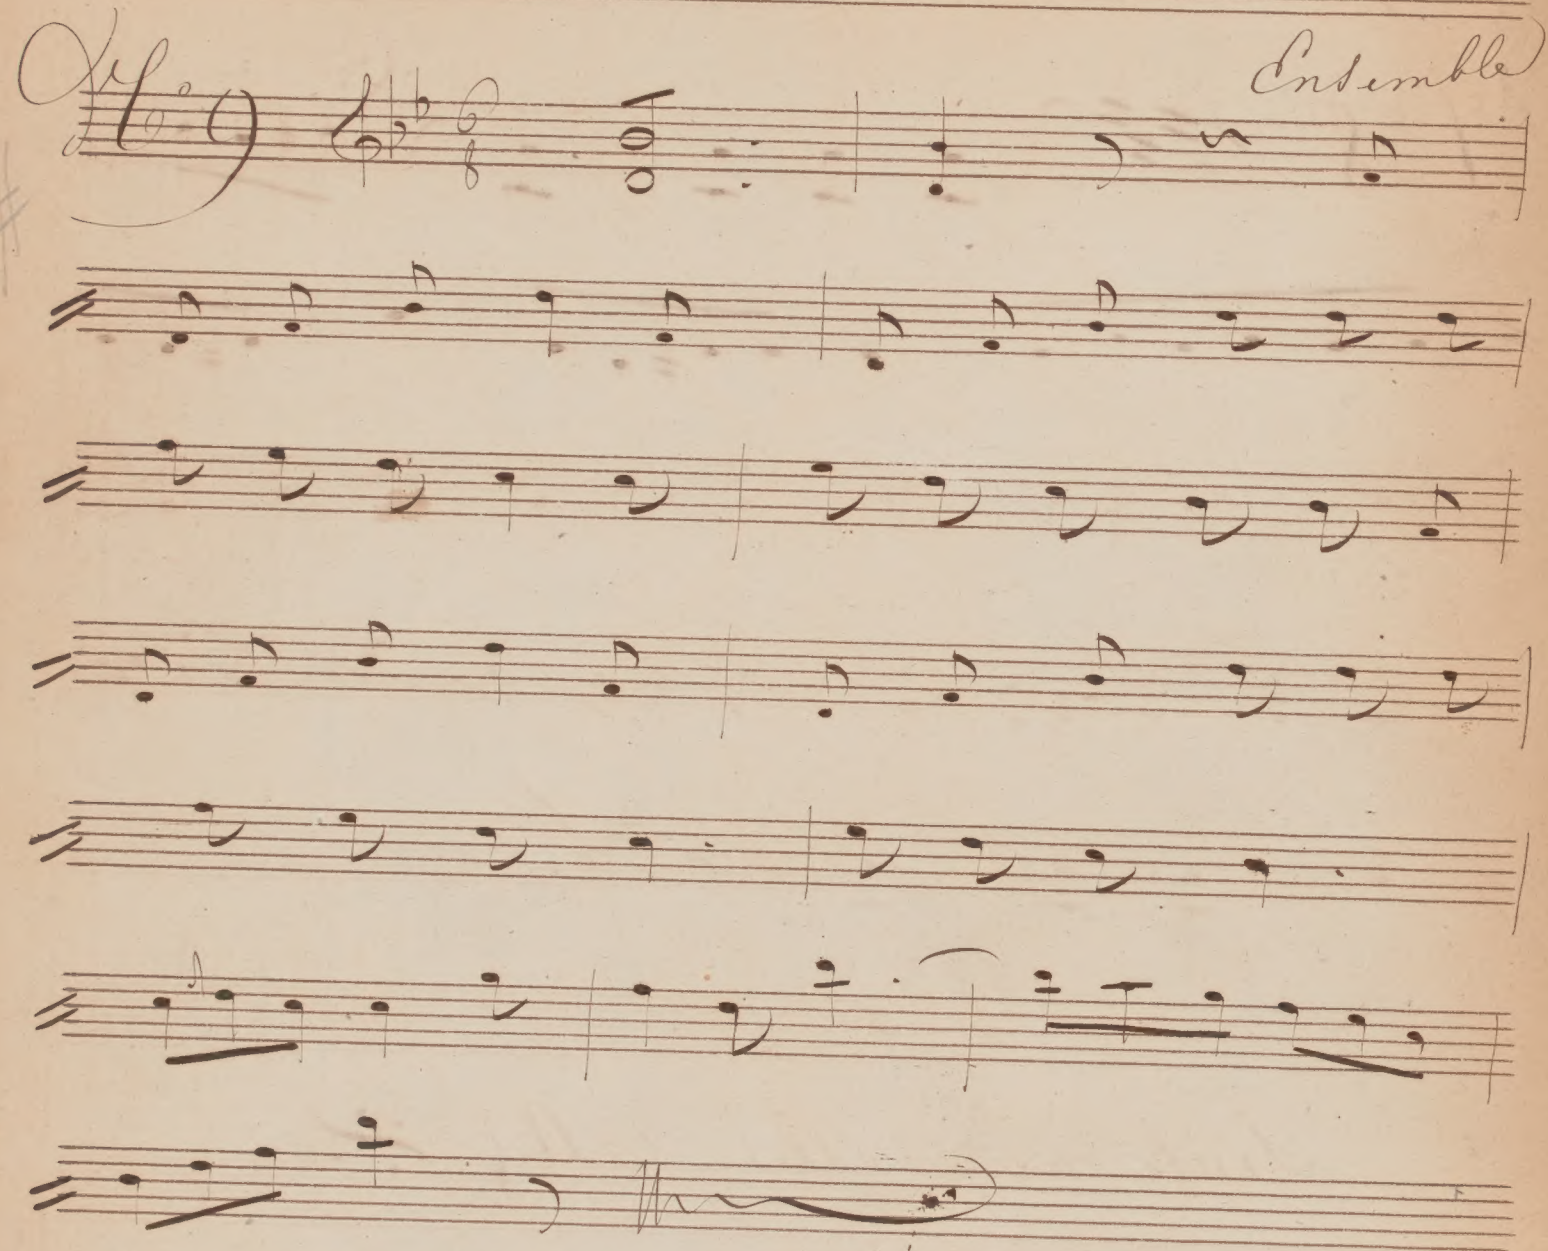 Nº 9
Ensemble
6
8